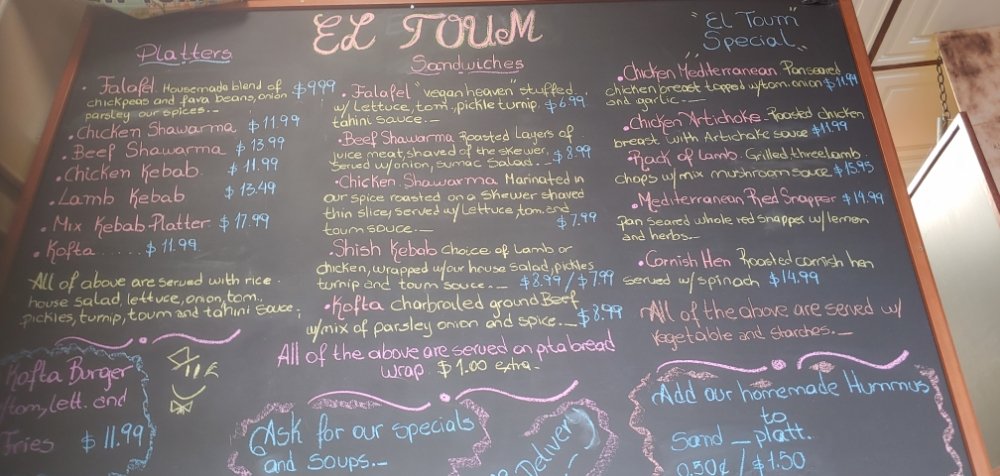 EL TOUM
Platters
Falafel. Housemade blend of $9.99
chickpeas and fava beans, onion
parsley our spices.--
Chicken Shawarma $11.99
Beef Shawarma $13.99
Chicken Kebab. $11.99
Lamb Kebab $13.49
Mix Kebab Platter. $17.99
Kofta ...... $11.99
All of above are served with rice.
house salad, lettuce, onion, tom.,
pickles, turnip, toum and tahini sauce;
Kofta Burger
tom, lett. and
Fries $11.99
Sandwiches
Falafel "vegan heaven" stuffed..
w/ Lettuce, tom., pickle turnip. $6.99
tahini sauce.--
Beef Shawarma Roasted Layers of
juice meat, shaved of the skewer.
Served w/onion, sumac salad... $8.99
Chicken Shawarma Marinated in
our spice roasted on a skewer shaved
thin slice, served w/ Lettuce, tom. and
toum souce.-- $7.99
Shish Kebab Choice of Lamb or
chicken, wrapped w/our house salad, pickles
turnip and toum sauce.-- $8.99/$7.99
Kofta charbroiled ground Beef $8.99
w/mix of parsley onion and spice.--
All of the above are served on pita bread
wrap. $1.00 extra.-
Ask for our specials
and soups.--
Delivery
"El Toum"
Special
Chicken Mediterranean Panseared
chicken breast topped w/tom. onion $11.99
and garlic.---
Chicken Artichoke. Roasted chicken
breast with Artichoke sauce $11.99
Rack of Lamb. Grilled three lamb
chops w/mix mushroom souce $15.95
Mediterranean Red Snapper $14.99
pan seared whole red snapper w/lemon
and herbs--
Cornish Hen Roasted cornish hen
served w/spinach $14.99
All of the above are served w/
vegetable and starches.--
Add our homemade Hummus
to
Sand _ platt.
0.50¢ / $1.50